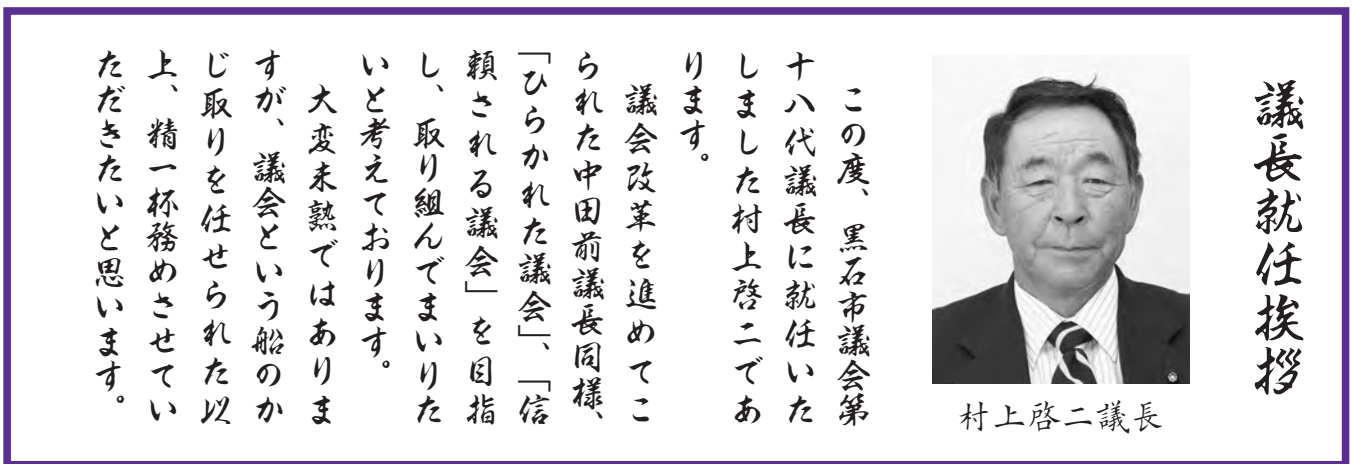 議長就任挨拶
村上啓二議長
この度、黒石市議会第
十八代議長に就任いた
しました村上啓二であ
ります。
議会改革を進めてこ
られた中田前議長同様、
「ひらかれた議会」、「信
頼される議会」を目指
し、取り組んでまいりた
いと考えております。
大変未熟ではありま
すが、議会という船のか
じ取りを任せられた以
上、精一杯務めさせてい
ただきたいと思います。